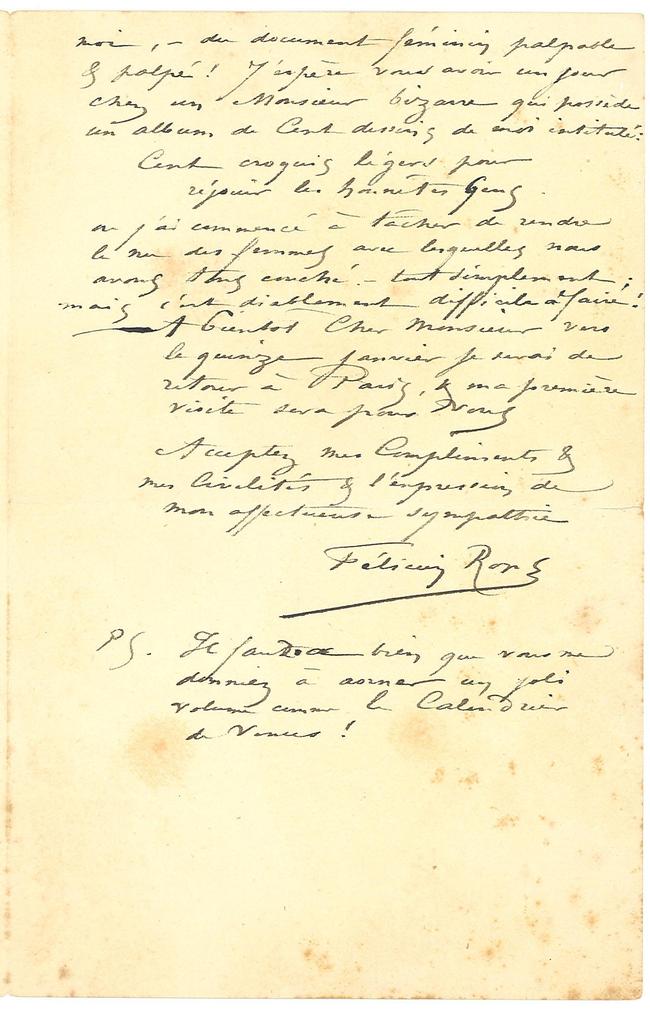 moi, – du document féminin palpable
& palpé ! J'espère vous avoir un jour
chez un Monsieur bizarre qui possède
un album de Cent dessins de moi intitulé:
Cent croquis légers pour
réjouir les honnêtes Gens.
ou j'ai commencé à tâcher de rendre
le nu des femmes avec lesquelles nous
avons tous couché. – tout simplement ;
mais c'est diablement difficile à faire !
A Bientot Cher Monsieur vers
le quinze janvier je serai de
retour à Paris, & ma première
visite sera pour Vous
Acceptez mes Compliments &
mes Civilités & l'expression de
mon affectueuse sympathie
Félicien Rops
PS. Il faudra bien que vous me
donniez à orner un joli
volume comme le Calendrier
de Venus !